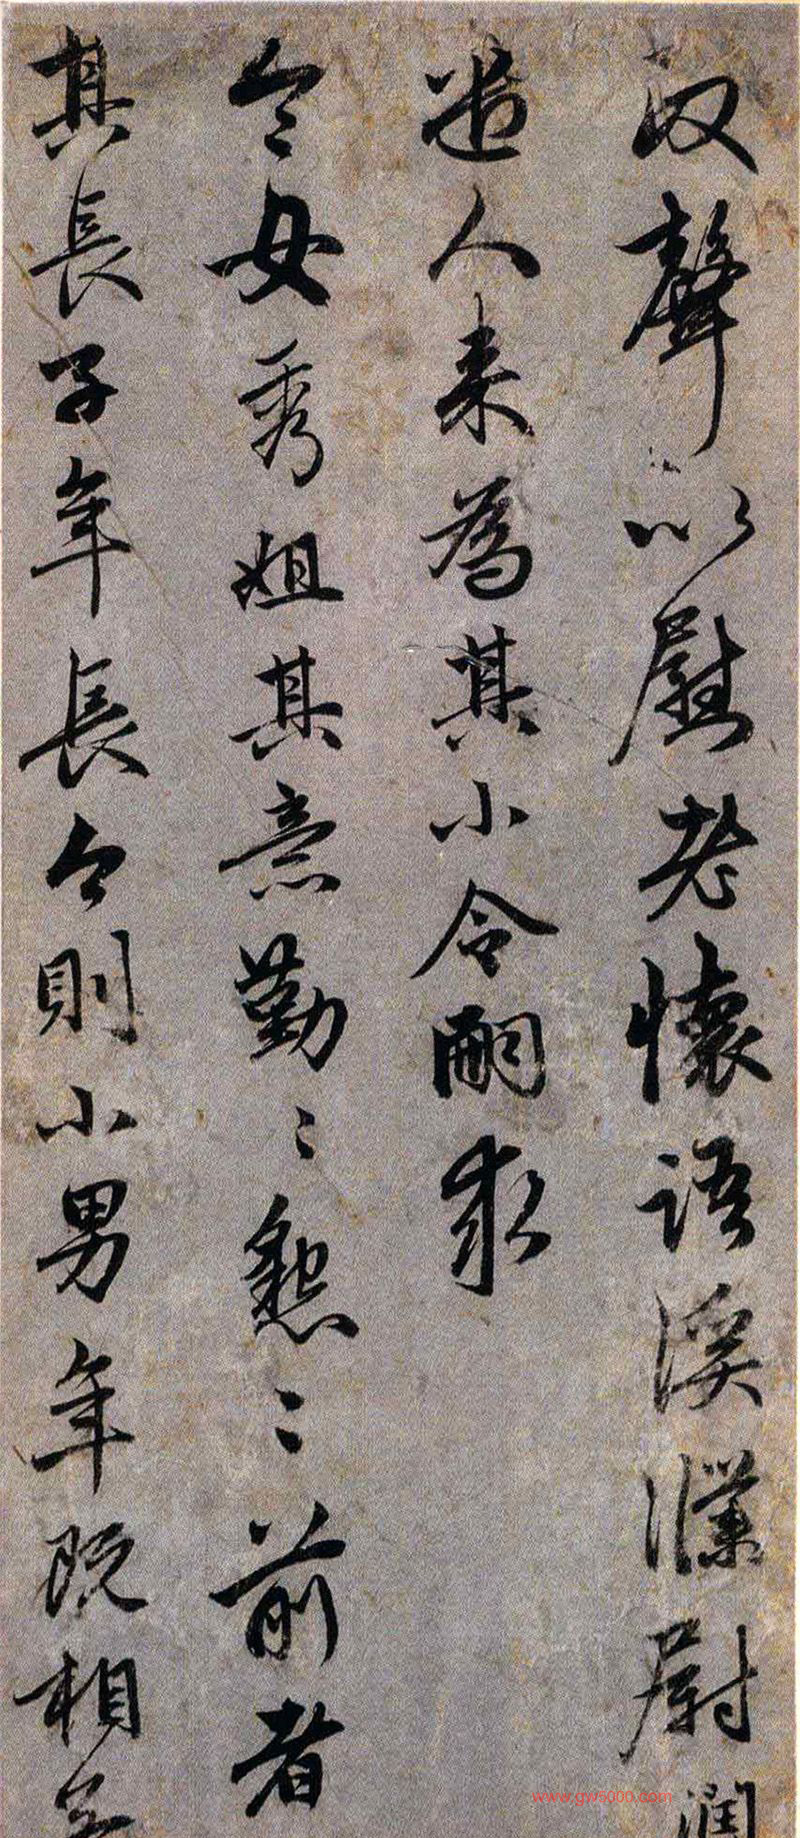 政聲以慰老懷語溪濮尉潤
遣人來為其小令嗣求
令女秀姐其意勤〻懇〻前者
其長子年長今則小男年既相
www.gw5000.com